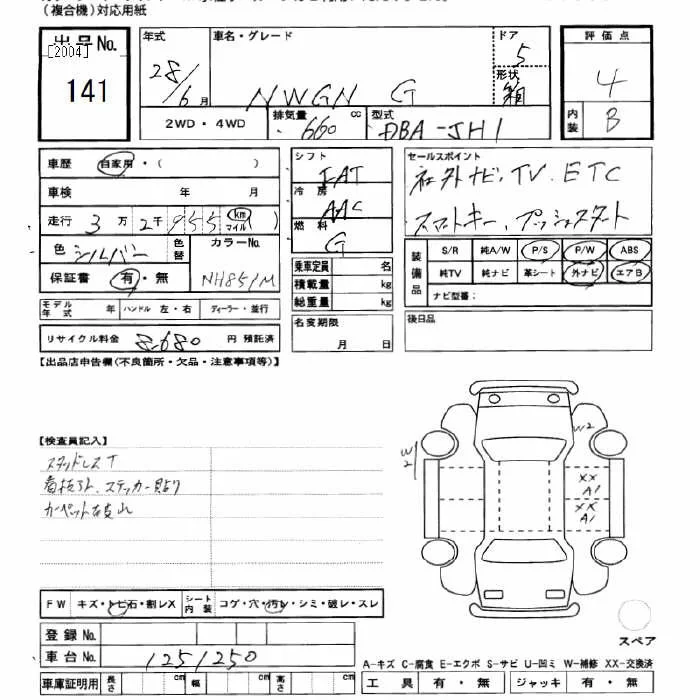 (複合機)対応用紙
出品No.
[2004]
141
年式
28/6月
車名・グレード
NWGN G
ドア
5
形状
箱
2WD・4WD
排気量
660 cc
型式
DBA-JH1
評価点
4
内装
B
車歴 自家用・( )
車検 年 月
走行 3万2千955 km マイル )
色 シルバー 色替 カラーNo.
保証書 有・無 NH851M
モデル年式 年 ハンドル 左・右 ディーラー・並行
リサイクル料金 8,680 円 預託済
シフト
IAT
冷房
AAC
燃料
G
乗車定員 名
積載量 kg
総重量 kg
名変期限
月 日
セールスポイント
社外ナビ、TV、ETC
スマートキー、プッシュスタート
装備品
S/R 純A/W P/S P/W ABS
純TV 純ナビ 革シート 外ナビ エアB
ナビ型番:
後日品
【出品店申告欄(不良箇所・欠品・注意事項等)】
【検査員記入】
スタッドレスT
カーペット
FW キズ・トビ石・割レX シート内装 コゲ・穴・汚レ・シミ・破レ・スレ
登録No.
車台No. 1251250
車庫証明用 長さ cm 幅 cm 高さ cm
W2
W2
XX
A1
XX
A1
スペア
A-キズ C-腐食 E-エクボ S-サビ U-凹ミ W-補修 XX-交換済
工具 有・無 ジャッキ 有・無